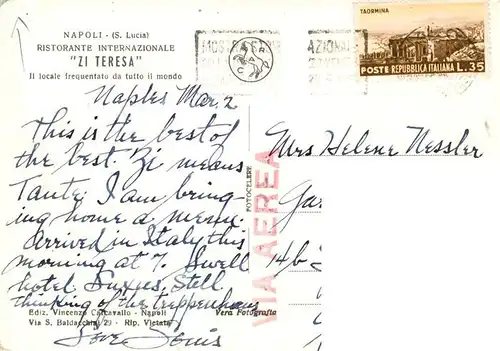 NAPOLI - (S. Lucia)
RISTORANTE INTERNAZIONALE
"ZI TERESA"
Il locale frequentato da tutto il mondo
TAORMINA
POSTE REPUBBLICA ITALIANA L.35
Naples Mar. 2
This is the best of
the best. Zi means
Tante. I am bring-
ing home a menu.
Arrived in Italy this
morning at 7. Swell
hotel. Still
thinking of the treppenhaus
Love
Mrs Helene Nessler
Gar
14b
VIA AEREA
FOTOCELERE
Ediz. Vincenzo Carcavallo - Napoli
Via S. Baldacchini 29 - Rip. Vietata
Vera Fotografia